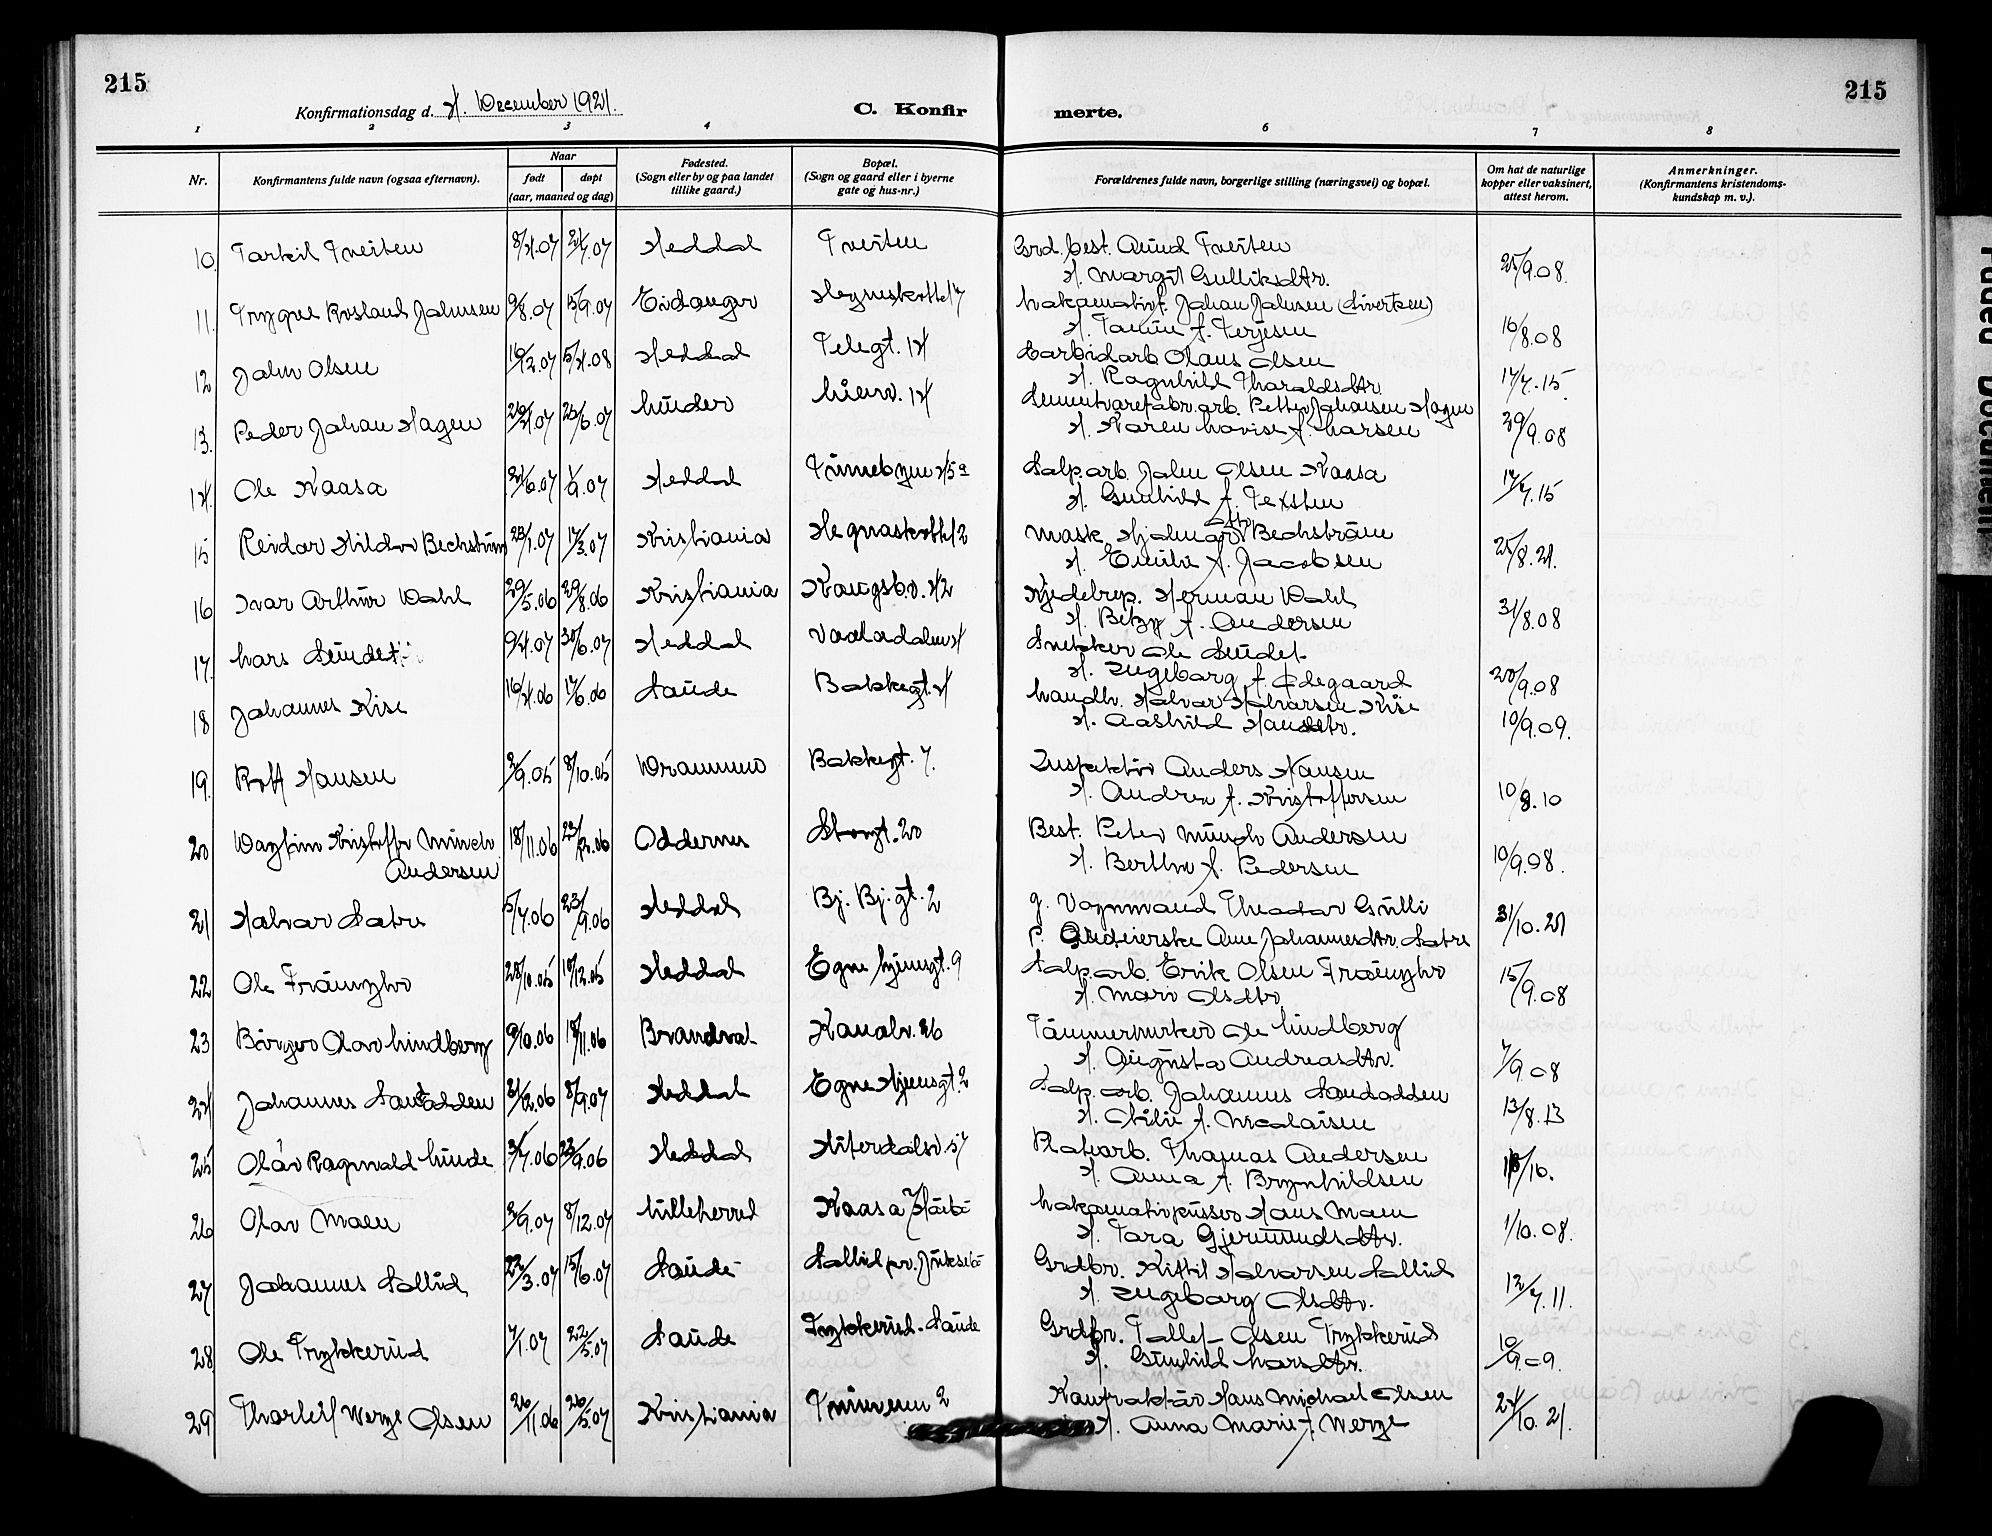 215
215
Konfirmationsdag d. 4. December 1921.
C. Konfirmerte.
1 2 3 4 5 6 7 8
Nr.
Konfirmantens fulde navn (ogsaa efternavn).
Naar
født
døpt
(aar, maaned og dag)
Fødested.
(Sogn eller by og paa landet
tillike gaard.)
Bopæl.
(Sogn og gaard eller i byerne
gate og hus-nr.)
Forældrenes fulde navn, borgerlige stilling (næringsvei) og bopæl.
Om hat de naturlige
kopper eller vaksinert,
attest herom.
Anmerkninger.
(Konfirmantens kristendoms-
kundskap m. v.).
10. Torkil Tveiten 8/4.07 Heddal Tveiten Grd.best. Aund Tveiten 25/9.08.
H. Margit Gulliksdtr.
11. Trygve Rosland Johnsen 9/8.07 15/9.07 Eidanger Johan Johnsen (Sivertsen) 16/8.08
f. Terjesen
12 John Olsen 16/12.07 5/4.08 Heddal Telegt. 14 Carbidarb. Olaus Olsen 17/7.15
H. Ragnhild Tharaldsdtr.
13. Peder Johan Hagen 26/4.07 Lunder Lienv. 14 Sementvarefabr.arb. Petter Johansen Hagen 29/9.08
H. Karen Lovise f. Larsen
14 Ole Kaasa 24/6.07 1/9.07 Heddal Tinnebyen 45a Salp.arb. John Olsen Kaasa 17/7.15
H. Gunhild f.
15 Reidar Hildor Bechstrøm 23/1.07 17/3.07 Kristiania Hegnaskottet 2 Mask. Hjalmar Otto Bechstrøm 25/8.21.
H. Emilie f. Jacobsen
16 Ivar Arthur Dahl 29/5.06 29/8.06 Kristiania Kongsb.v. 42 Kjedelrep. Herman Dahl 31/8.08
H. Betzy f. Andersen
17. Lars Sundet 9/4.07 30/6.07 Heddal Vaaladalen 4 Snekker Ole Sundet 20/9.08
H. Ingeborg f. Ødegaard
18 Johannes Kise 16/4.06 17/6.06 Saude Bakkegt. 4 Landh. Halvor Halvorsen Kise 10/9.09.
H. Aashild Hansdtr.
19. Rolf Hansen 2/9.05 8/10.05 Drammen Bakkegt. 7. Inspektør Anders Hansen 10/8.10
H. Andrea f. Kristoffersen
20 Dagfinn Kristoffer Münch 18/11.06 23/12.06 Oddernes Storgt. 20 Best. Peter Münch Andersen 10/9.08.
Andersen H. Berthe f. Pedersen
21 Halvor Satre 5/7.06 23/9.06 Heddal Bj. Bj.gt. 2 g. Vognmand Theodor Gulli 31/10.21
p. Anne Johannesdtr. Satre
22 Ole Traungho 28/10.05 10/12.05 Heddal Egne hjemsgt. 9 Salp.arb. Erik Olsen Traungho 15/9.08
H. Mari Olsdtr
23 Birger Olav Lindberg 9/10.06 18/11.06 Brandval Kanalv. 26 Tømmermerker Ole Lindberg 7/9.08
H. Augusta Andreasdtr.
24 Johannes Sandodden 21/12.06 8/9.07 Heddal Egne Hjemsgt. 2 Salp.arb. Johannes Sandodden 13/8.13
H. Otilie f. Nicolaisen
25 Olav Ragnvald Lunde 3/7.06 23/9.06 Heddal Hiterdalsv. 57 Platarb. Thomas Andersen
H. Anna f. Brynhildsen
26 Olav Moen 2/9.07 8/12.07 Lilleherred Kaasa Lokomotivpusser Hans Moen 1/10.08.
H. Tora Gjermundsdtr.
27 Johannes Sollid 22/3.07 15/6.07 Saude Sollid pr. Jukseb. Grdbr. Kittil Halvorsen Sollid 12/7.11.
H. Ingeborg Olsdtr.
28 Ole Trykkerud 7/1.07 22/5.07 Saude Trykkerud. Saude Grdbr. Tallef Olsen Trykkerud 10/9.09.
H. Gunhild Larsdtr.
29 Thorleif Werge Olsen 26/11.06 26/5.07 Kristiania 2 Kontraktør Hans Michael Olsen 24/10.21.
H. Anna Marie f. Werge